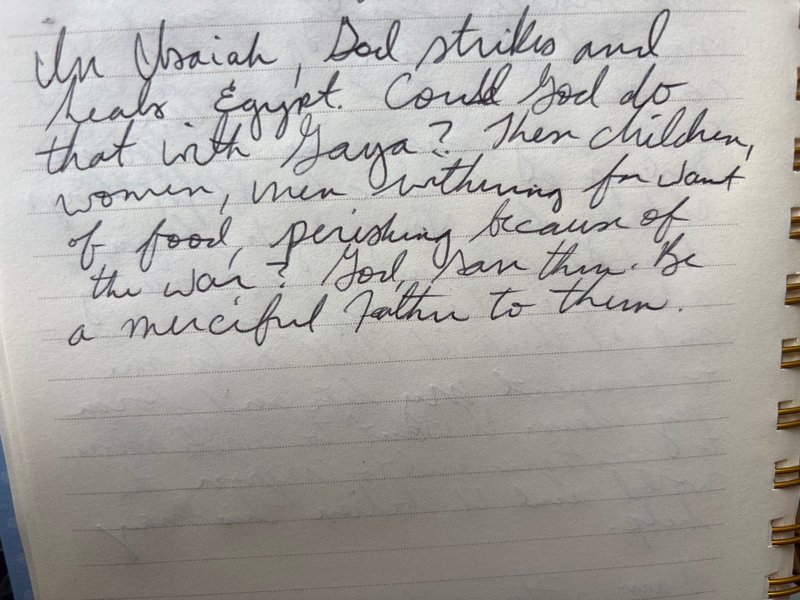 In Isaiah, God strikes and
heals Egypt. Could God do
that with Gaza? Then children,
women, men withering for want
of food, perishing because of
the war? God, save them. Be
a merciful Father to them.